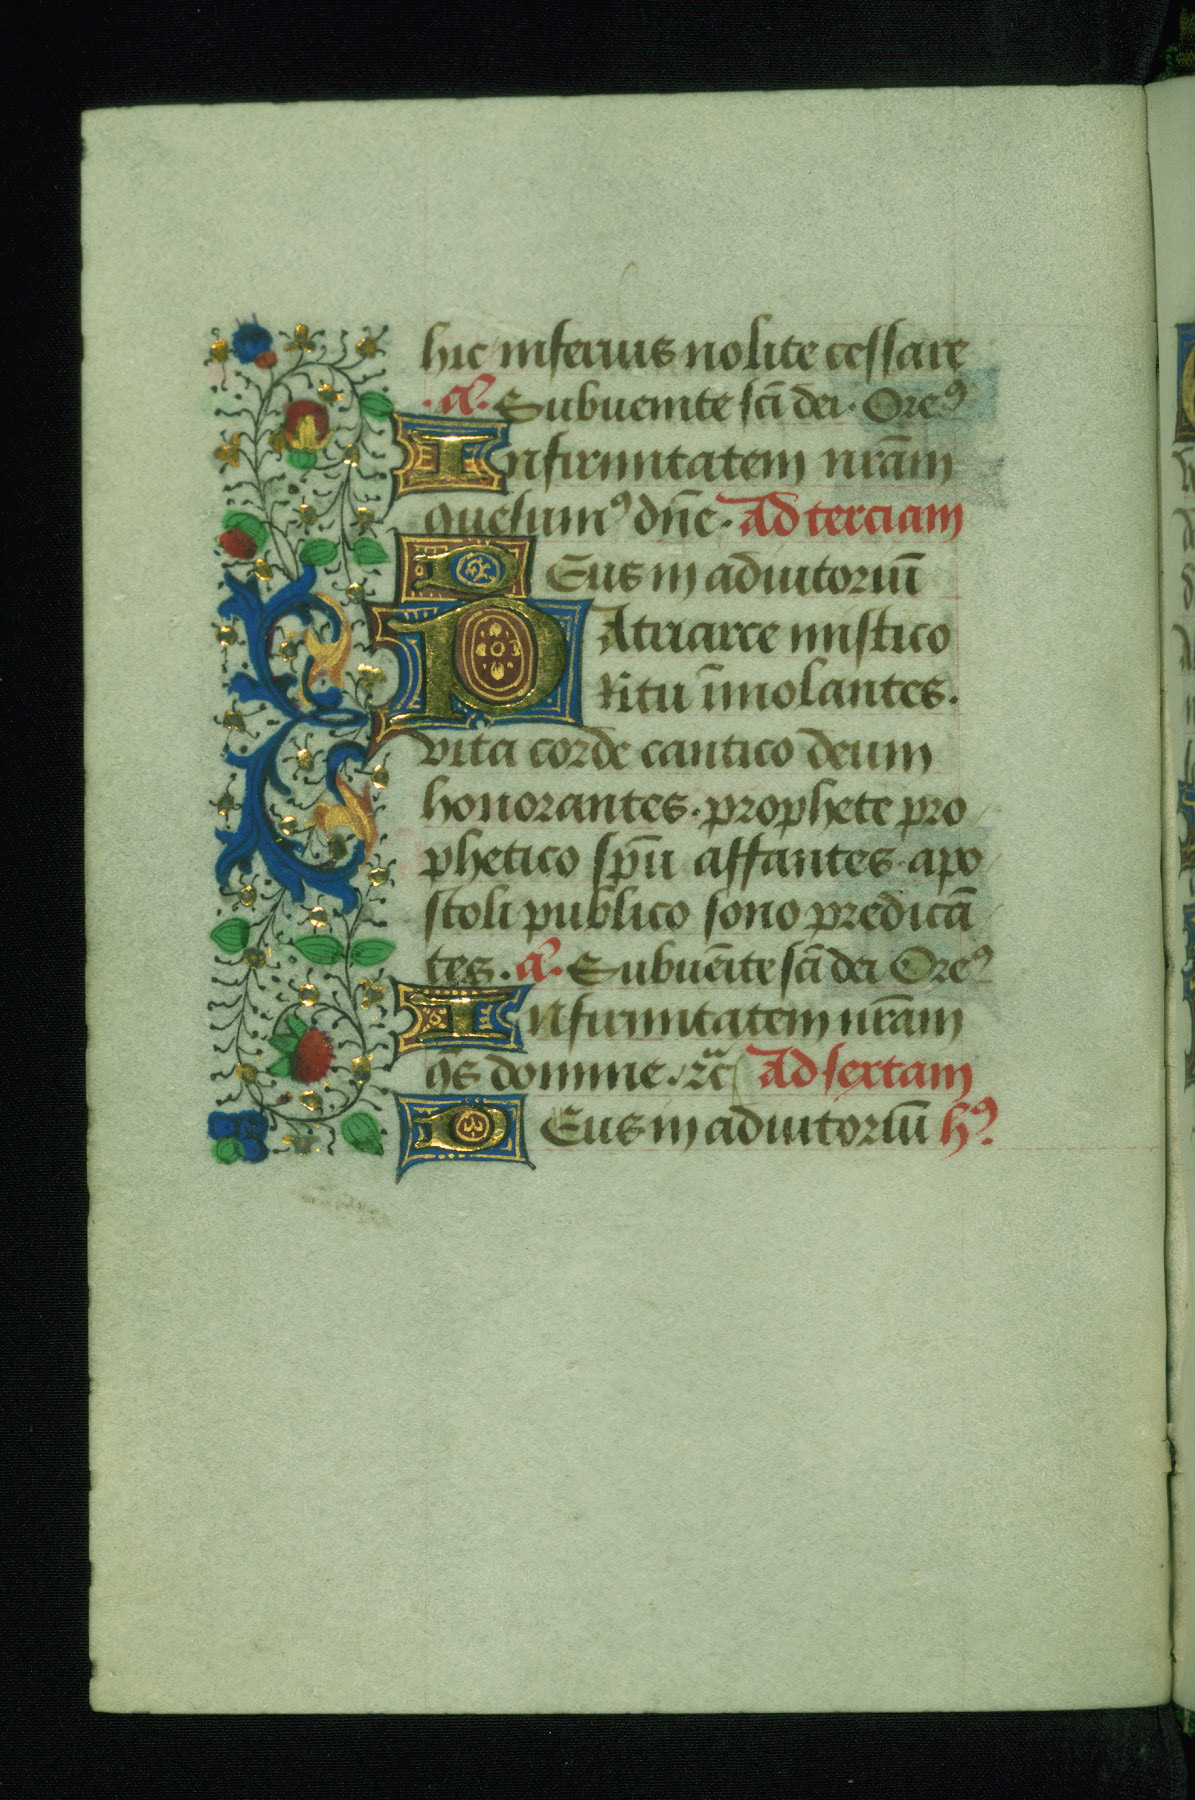 hic inferius nolite cessare
.a͞. Subuenite sc̄i dei. Oreꝰ
Infirmitatem nr̄am
quesumꝰ dn̄e. Ad terciam
Deus in adiutoriū
Patriarce mistico
Ritu īmolantes.
vita corde cantico deum
honorantes. prophete pro
phetico sp̄u affantes. apo
stoli publico sono predicā
tes. a͞. Subuēite sc̄i dei Oreꝰ
Infirmitatem nr̄am
q̄s domine. ⁊c̄ Ad sextam
Deus in adiutoriū hꝰ.